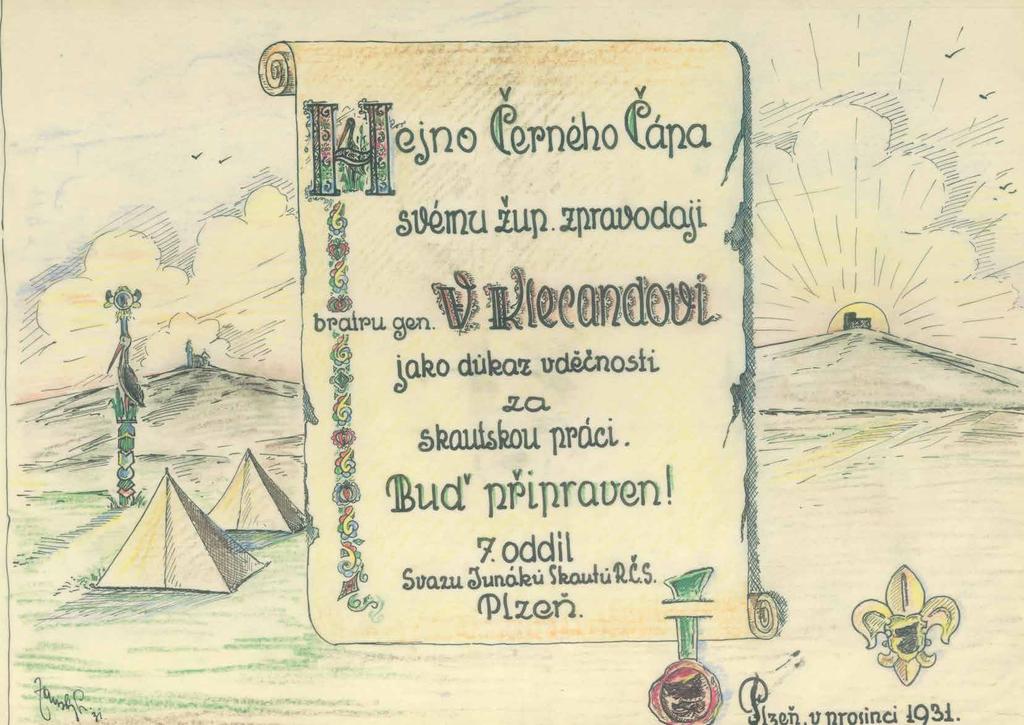 Hejno Černého Čápa
svému žup. zpravodaji
bratru gen. V Klecandovi
jako důkaz vděčnosti
za
skautskou práci.
Buď připraven!
7. oddíl
Svazu Junáků Skautů R.Č.S.
Plzeň.
Plzeň, v prosinci 1931.